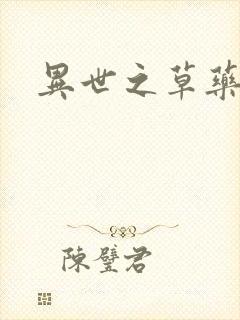 異世之草藥
陳璧君